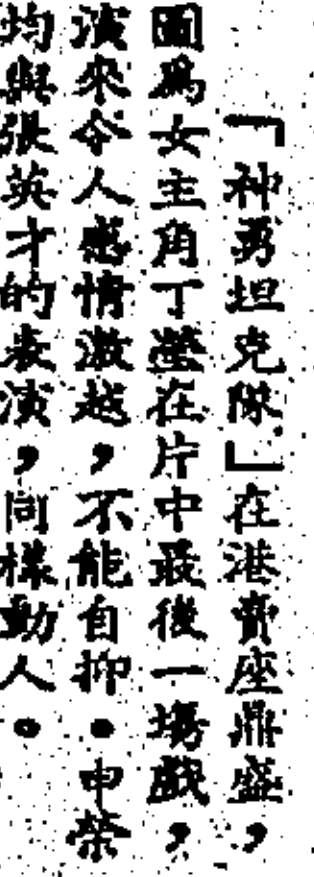 「神勇坦克隊」在港賣座鼎盛，
圖為女主角丁瑩在片中最後一場戲，
演來令人感情激越，不能自抑。申榮
均與張英才的表演，同樣動人。